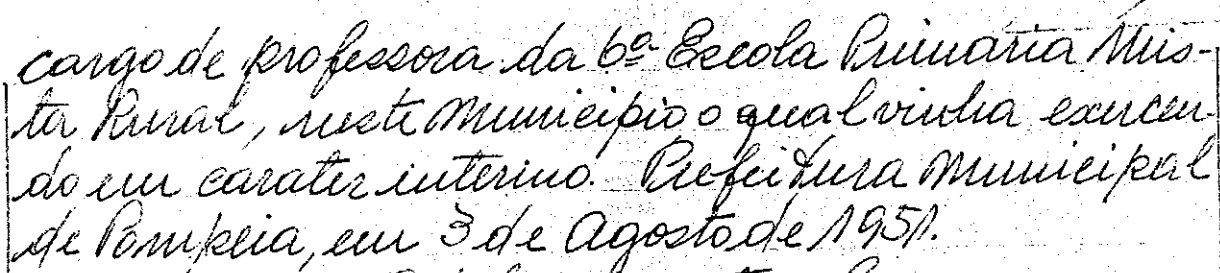 cargo de professora da 6ª Escola Primária Mis-
ta Rural, neste Municipio o qual vinha exercen-
do em carater interino. Prefeitura Municipal
de Pompeia, em 3 de Agosto de 1951.